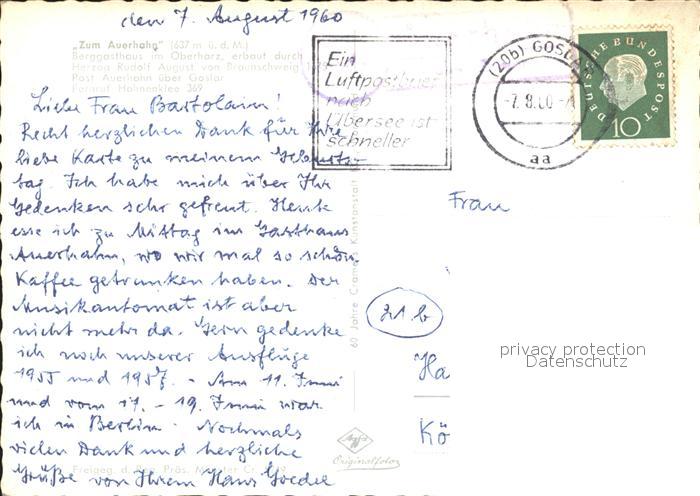 den 7. August 1960
"Zum Auerhahn" (637 m ü. d. M.)
Berggasthaus im Oberharz, erbaut durch
Herzog Rudolf August von Braunschweig
Post Auerhahn über Goslar
Fernruf Hahnenklee 369
Liebe Frau Bartolain!
Recht herzlichen Dank für Ihre
liebe Karte zu meinem Geburts-
tag. Ich habe mich über Ihr
Gedenken sehr gefreut. Heute
esse ich zu Mittag im Gasthaus
Auerhahn, wo wir mal so schön
Kaffee getrunken haben. Der
Musikautomat ist aber
nicht mehr da. Gern gedenke
ich noch unserer Ausflüge
1955 und 1957. - Am 11. Juni
und vom 17. - 19. Juni war
ich in Berlin. Nochmals
vielen Dank und herzliche
Grüße von Ihrem Hans Goedel
Freigeg. d. Reg. Präs. Münster
60 Jahre Cramers Kunstanstalt
Ein
Luftpostbrief
nach
Übersee ist
schneller
(20b) GOSLAR
-7.8.60-
aa
DEUTSCHE BUNDESPOST
10
Frau
21b
Ha
Kö
privacy protection
Datenschutz
Agfa
Originalfoto